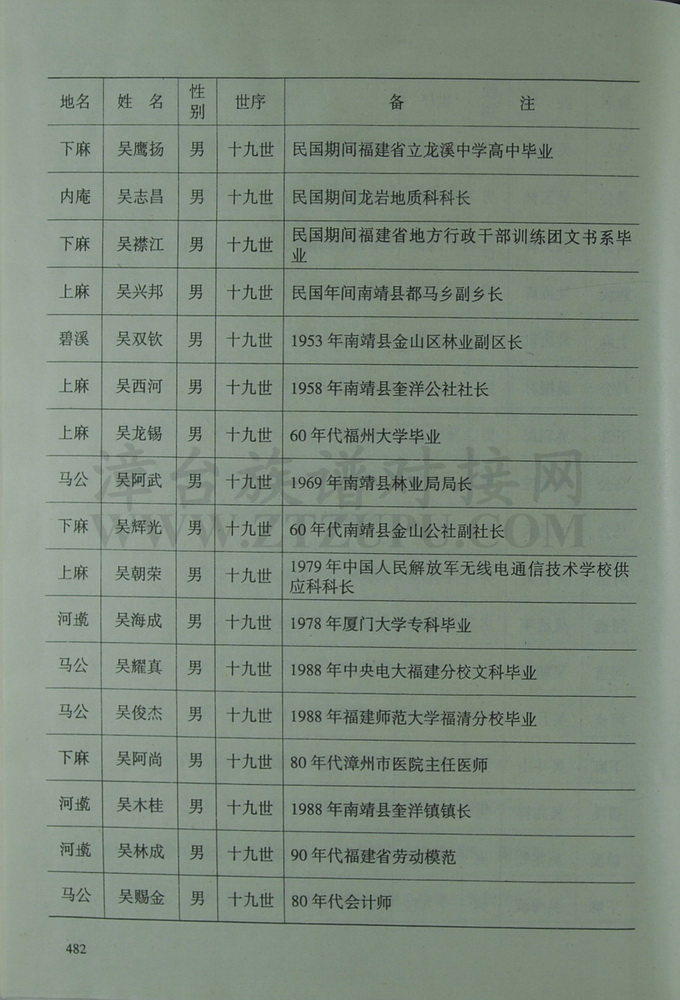 地名 姓 名 性别 世序 备 注
下麻 吴鹰扬 男 十九世 民国期间福建省立龙溪中学高中毕业
内庵 吴志昌 男 十九世 民国期间龙岩地质科科长
下麻 吴襟江 男 十九世 民国期间福建省地方行政干部训练团文书系毕
业
上麻 吴兴邦 男 十九世 民国年间南靖县都马乡副乡长
碧溪 吴双钦 男 十九世 1953年南靖县金山区林业副区长
上麻 吴西河 男 十九世 1958年南靖县奎洋公社社长
上麻 吴龙锡 男 十九世 60年代福州大学毕业
马公 吴阿武 男 十九世 1969年南靖县林业局局长
下麻 吴辉光 男 十九世 60年代南靖县金山公社副社长
上麻 吴朝荣 男 十九世 1979年中国人民解放军无线电通信技术学校供
应科科长
河 吴海成 男 十九世 1978年厦门大学专科毕业
马公 吴耀真 男 十九世 1988年中央电大福建分校文科毕业
马公 吴俊杰 男 十九世 1988年福建师范大学福清分校毕业
下麻 吴阿尚 男 十九世 80年代漳州市医院主任医师
河 吴木桂 男 十九世 1988年南靖县奎洋镇镇长
河 吴林成 男 十九世 90年代福建省劳动模范
马公 吴赐金 男 十九世 80年代会计师
漳台族谱对接网
WWW.ZTZUPU.COM
482